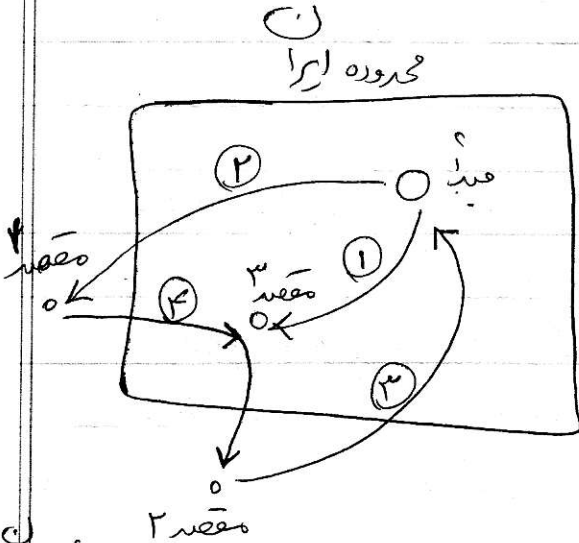 ن
محدوده ایرا
مبدأ
۲
۱
مقصد ۱
۴
مقصد ۳
۳
مقصد ۲
ن